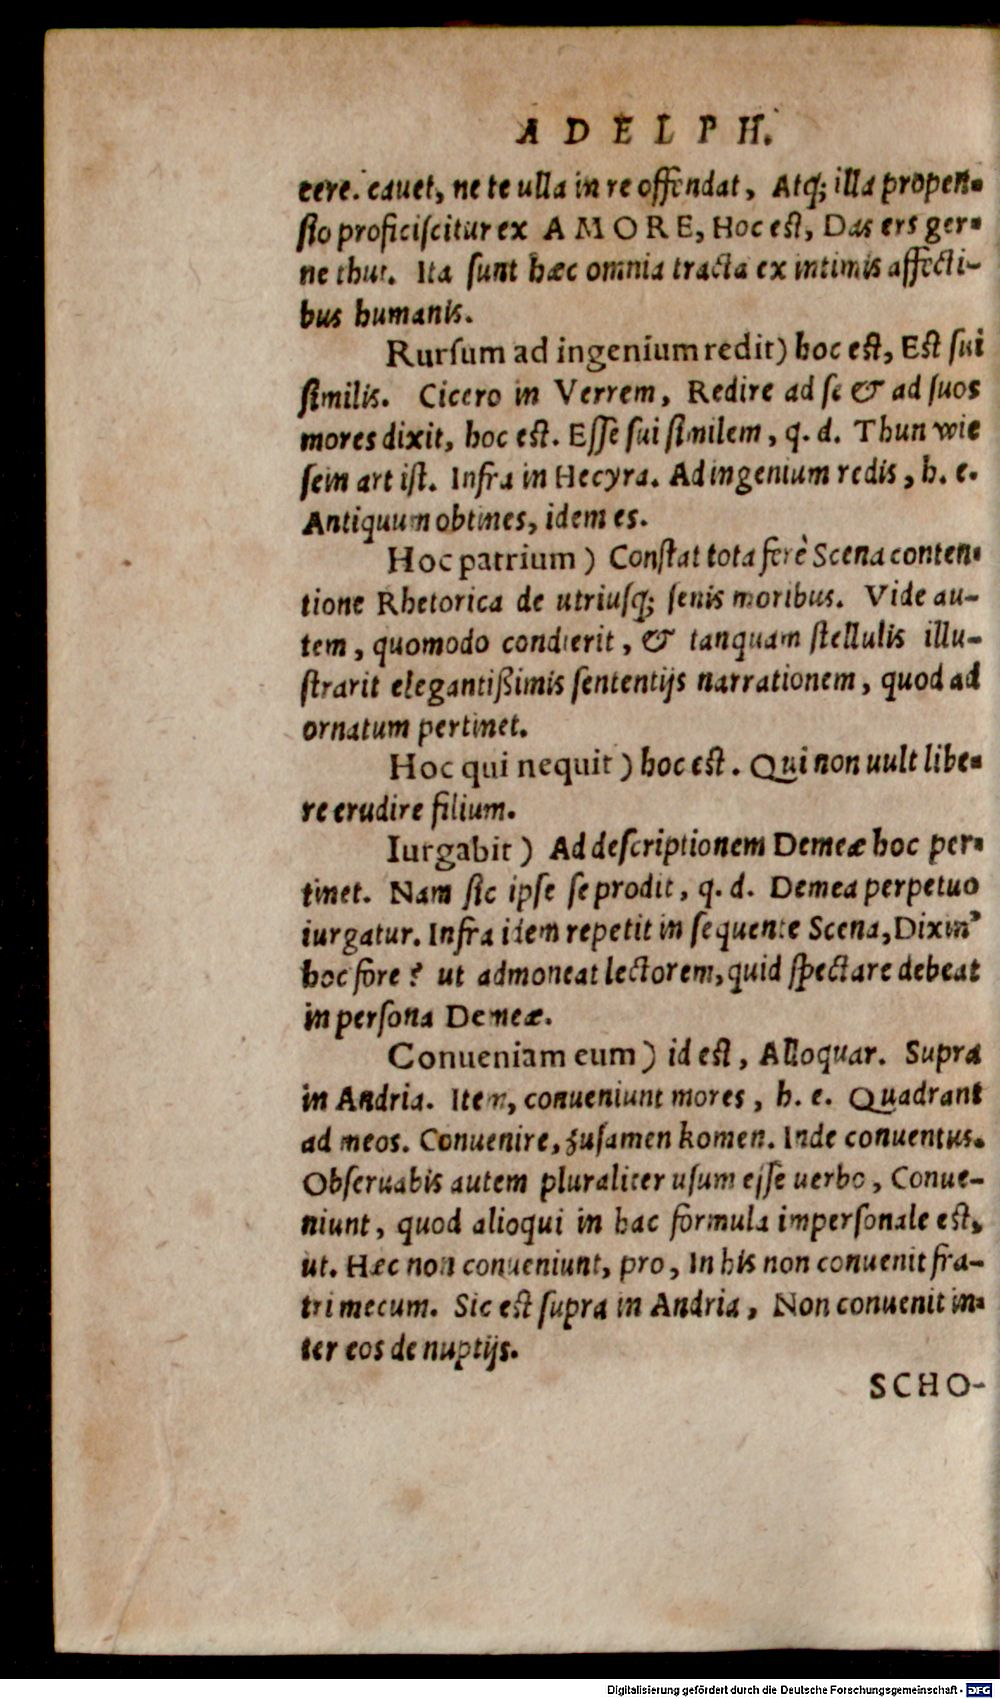 ADELPH.
cere. cauet, ne te ulla in re offendat, Atq; illa propen-
sio proficiscitur ex AMORE, Hoc est, Das ers ger-
ne thut. Ita sunt hæc omnia tracta ex intimis affecti-
bus humanis.
Rursum ad ingenium redit) hoc est, Est sui
similis. Cicero in Verrem, Redire ad se & ad suos
mores dixit, hoc est. Esse sui similem, q. d. Thun wie
sein art ist. Infra in Hecyra. Ad ingenium redis, h. e.
Antiquum obtines, idem es.
Hoc patrium) Constat tota ferè Scena conten-
tione Rhetorica de utriusq; senis moribus. Vide au-
tem, quomodo condierit, & tanquam stellulis illu-
strarit elegantißimis sententijs narrationem, quod ad
ornatum pertinet.
Hoc qui nequit) hoc est. Qui non uult libe-
re erudire filium.
Iurgabit) Ad descriptionem Demeæ hoc per-
tinet. Nam sic ipse se prodit, q. d. Demea perpetuo
iurgatur. Infra idem repetit in sequente Scena, Dixin'
hoc fore? ut admoneat lectorem, quid spectare debeat
in persona Demeæ.
Conueniam eum) id est, Alloquar. Supra
in Andria. Item, conueniunt mores, h. e. Quadrant
ad meos. Conuenire, zusamen komen. Inde conuentus.
Obseruabis autem pluraliter usum esse uerbo, Conue-
niunt, quod alioqui in hac formula impersonale est,
ut. Hæc non conueniunt, pro, In his non conuenit fra-
tri mecum. Sic est supra in Andria, Non conuenit in-
ter eos de nuptijs.
SCHO-
Digitalisierung gefördert durch die Deutsche Forschungsgemeinschaft - DFG